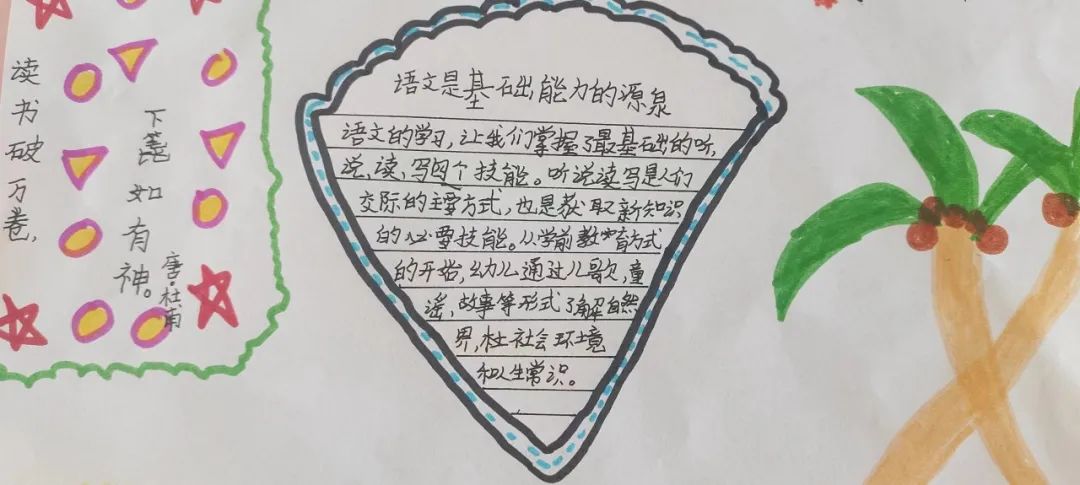 读书破万卷,
下笔如有神。
唐·杜甫
语文是基础能力的源泉
语文的学习,让我们掌握了最基础的听,
说、读、写四个技能。听说读写是人们
交际的主要方式,也是获取新知识
的必要技能。从学前教育方式
的开始,幼儿通过儿歌、童
谣、故事等形式了解自然
界,杜社会环境
和人生常识。